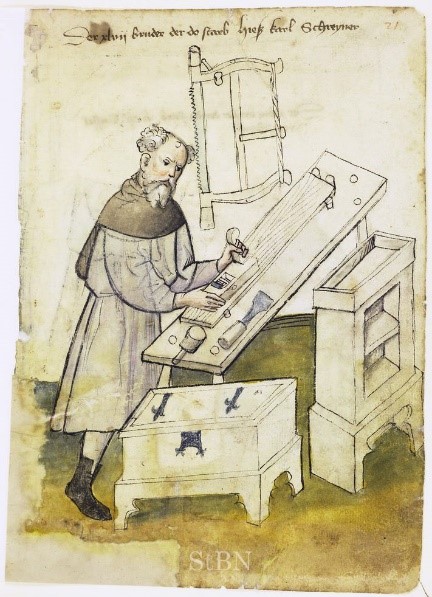 Der xlvii bruder der do starb hieß karl Schreyner
21
StBN